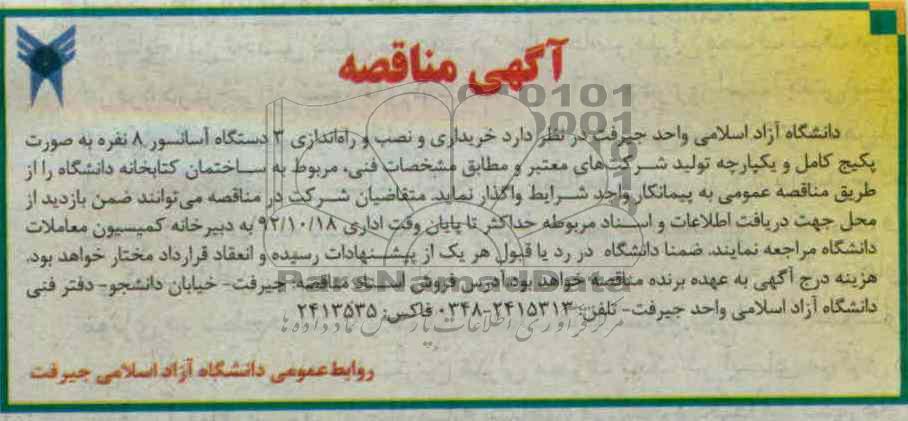 آگهی مناقصه
دانشگاه آزاد اسلامی واحد جیرفت در نظر دارد خریداری و نصب و راه‌اندازی ۳ دستگاه آسانسور ۸ نفره به صورت
پکیج کامل و یکپارچه تولید شرکت‌های معتبر و مطابق مشخصات فنی، مربوط به ساختمان کتابخانه دانشگاه را از
طریق مناقصه عمومی به پیمانکار واجد شرایط واگذار نماید. متقاضیان شرکت در مناقصه می‌توانند ضمن بازدید از
محل جهت دریافت اطلاعات و اسناد مربوطه حداکثر تا پایان وقت اداری ۹۲/۱۰/۱۸ به دبیرخانه کمیسیون معاملات
دانشگاه مراجعه نمایند. ضمنا دانشگاه در رد یا قبول هر یک از پیشنهادات رسیده و انعقاد قرارداد مختار خواهد بود.
هزینه درج آگهی به عهده برنده مناقصه خواهد بود. آدرس فروش اسناد مناقصه: جیرفت- خیابان دانشجو- دفتر فنی
دانشگاه آزاد اسلامی واحد جیرفت- تلفن: ۲۴۱۵۳۱۳-۰۳۴۸ فاکس: ۲۴۱۳۵۳۵
روابط عمومی دانشگاه آزاد اسلامی جیرفت
ParsNamadData